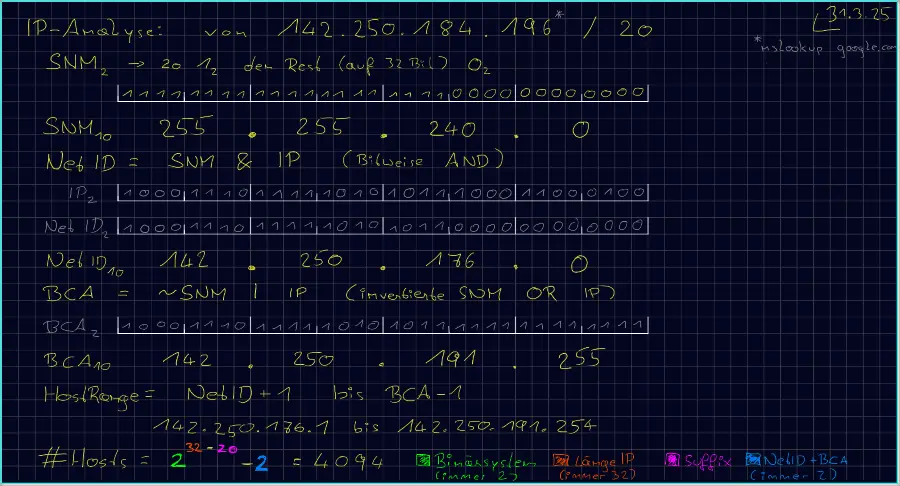 IP-Analyse: von 142.250.184.196* / 20
31.3.25
*nslookup google.com
SNM2 → 20 12 den Rest (auf 32 Bit) 02
1111 1111 1111 1111 1111 0000 0000 0000
SNM10 255 . 255 . 240 . 0
Net ID = SNM & IP (Bitweise AND)
IP2 1000 1110 1111 1010 1011 1000 1100 0100
Net ID2 1000 1110 1111 1010 1011 0000 0000 0000
Net ID10 142 . 250 . 176 . 0
BCA = ~SNM | IP (invertierte SNM OR IP)
BCA2 1000 1110 1111 1010 1011 1111 1111 1111
BCA10 142 . 250 . 191 . 255
HostRange = NetID+1 bis BCA-1
142.250.176.1 bis 142.250.191.254
#Hosts = 2^32-20 - 2 = 4094
Binärsystem (immer 2)
Länge IP (immer 32)
Suffix
NetID+BCA (immer 2)